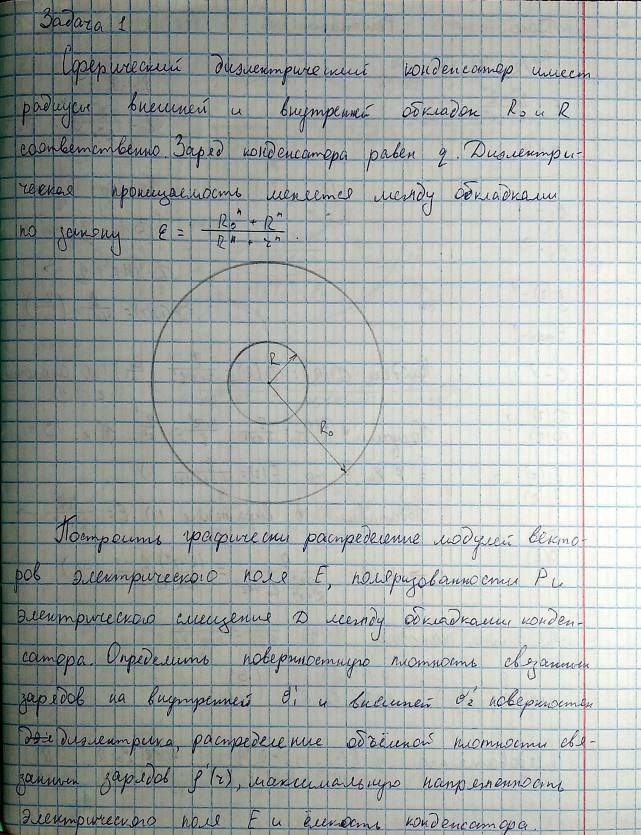 Задача 1
Сферический диэлектрический конденсатор имеет
радиусы внешней и внутренней обкладок R₀ и R
соответственно. Заряд конденсатора равен q. Диэлектри-
ческая проницаемость меняется между обкладками
по закону ε = (R₀ⁿ + Rⁿ) / (Rⁿ + rⁿ).
R
R₀
Построить графически распределение модулей векто-
ров электрического поля E, поляризованности P и
электрического смещения D между обкладками конден-
сатора. Определить поверхностную плотность связанных
зарядов на внутренней σ'₁ и внешней σ'₂ поверхностях
диэлектрика, распределение объёмной плотности свя-
занных зарядов ρ'(r), максимальную напряженность
электрического поля E и ёмкость конденсатора.